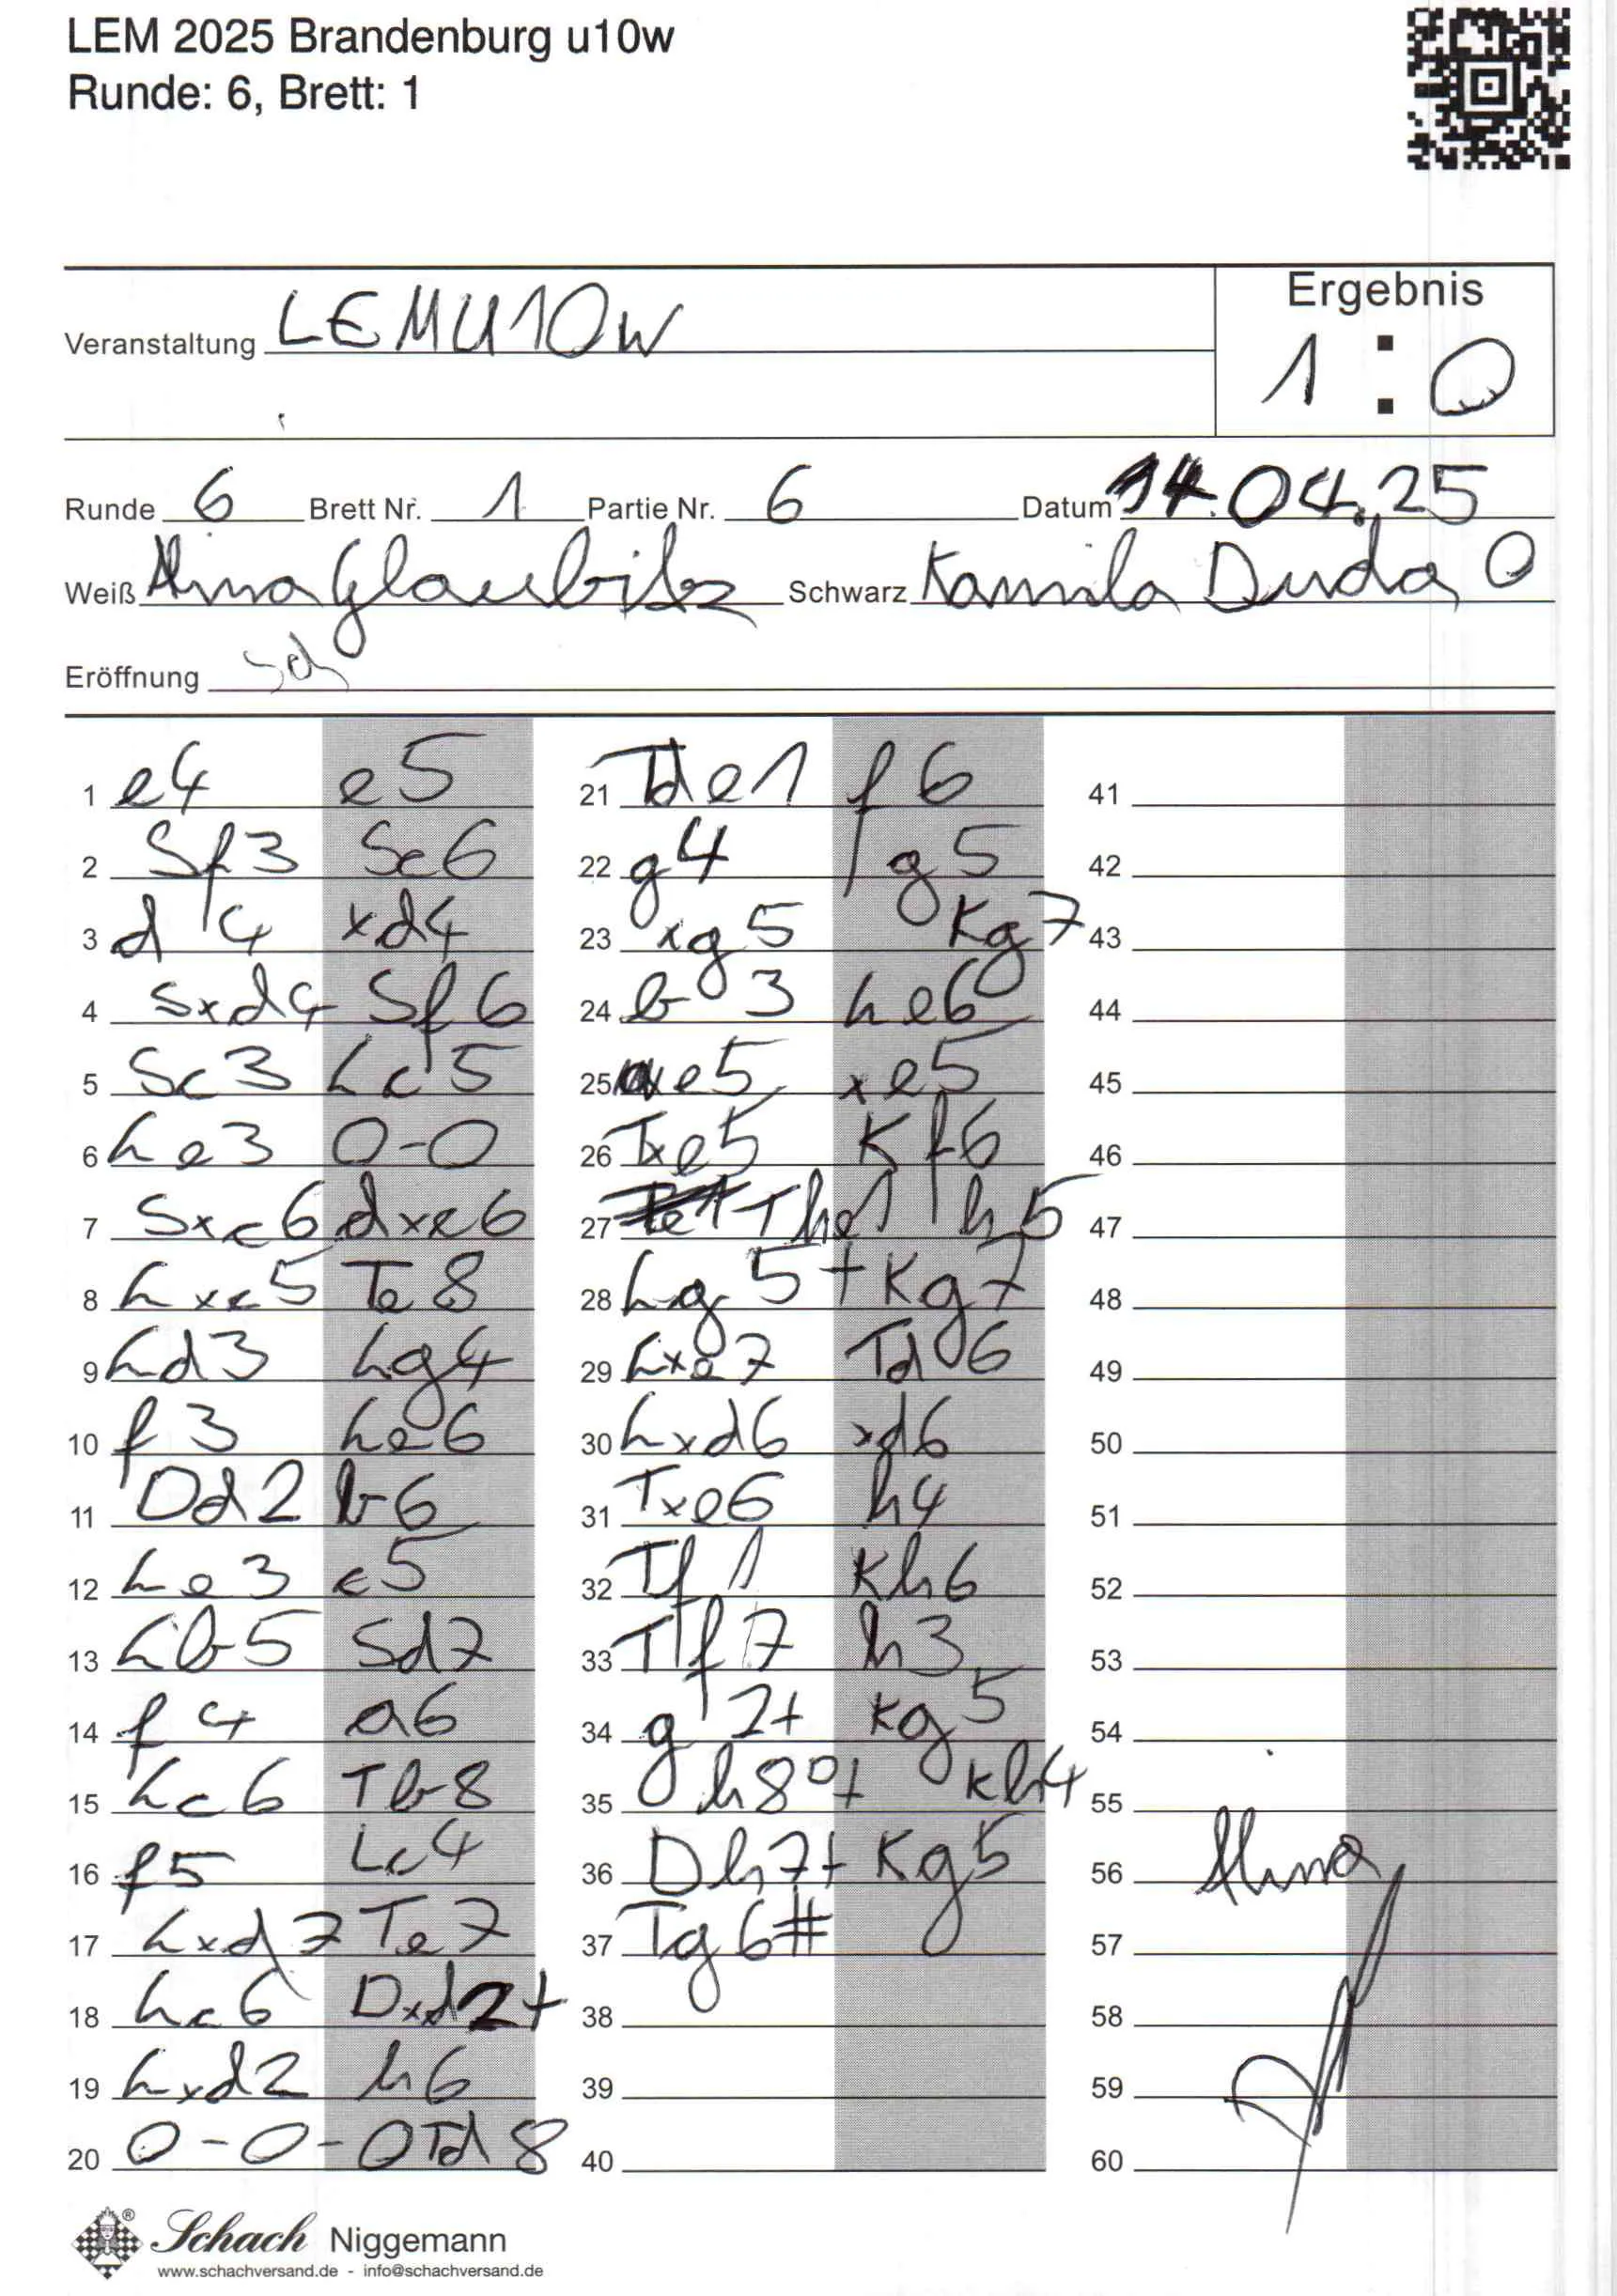 LEM 2025 Brandenburg u10w
Runde: 6, Brett: 1
Ergebnis
Veranstaltung LEMU10w
1 : 0
Runde 6 Brett Nr. 1 Partie Nr. 6 Datum 14.04.25
Weiß Alina Glaubitz Schwarz Kamila Duda 0
Eröffnung
1 e4 e5
2 Sf3 Sc6
3 d4 xd4
4 Sxd4 Sf6
5 Sc3 Lc5
6 Le3 0-0
7 Sxc6 dxc6
8 Lxc5 Te8
9 Ld3 Lg4
10 f3 Le6
11 Dd2 b6
12 Le3 c5
13 Lb5 Sd7
14 f4 a6
15 Lc6 Tb8
16 f5 Lc4
17 Lxd7 Te7
18 Lc6 Dxd2+
19 Lxd2 h6
20 0-0-0 Td8
21 Tde1 f6
22 g4 g5
23 xg5 Kg7
24 b3 Le6
25 e5 xe5
26 Txe5 Kf6
27 The1 h5
28 Lg5+ Kg7
29 Lxe7 Td6
30 Lxd6 xd6
31 Txe6 h4
32 Tf1 Kh6
33 Tf7 h3
34 g7+ Kg5
35 g8D+ Kh4
36 Dh7+ Kg5
37 Tg6#
38
39
40
41
42
43
44
45
46
47
48
49
50
51
52
53
54
55
56 Alina
57
58
59
60
Schach Niggemann
www.schachversand.de - info@schachversand.de